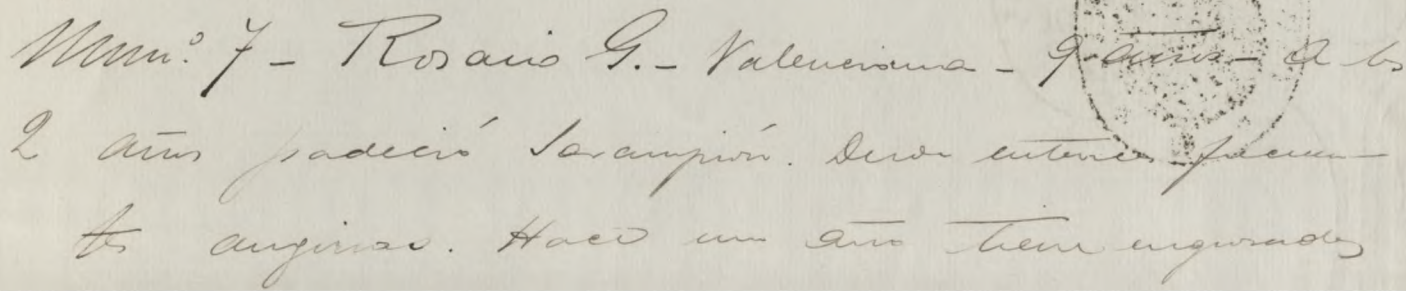 Num.º 7 - Rosario G. - Valenciana - 9 años - A los
2 años padeció Sarampión. Desde entonces frecuen-
tes anginas. Hace un año tiene engrosados